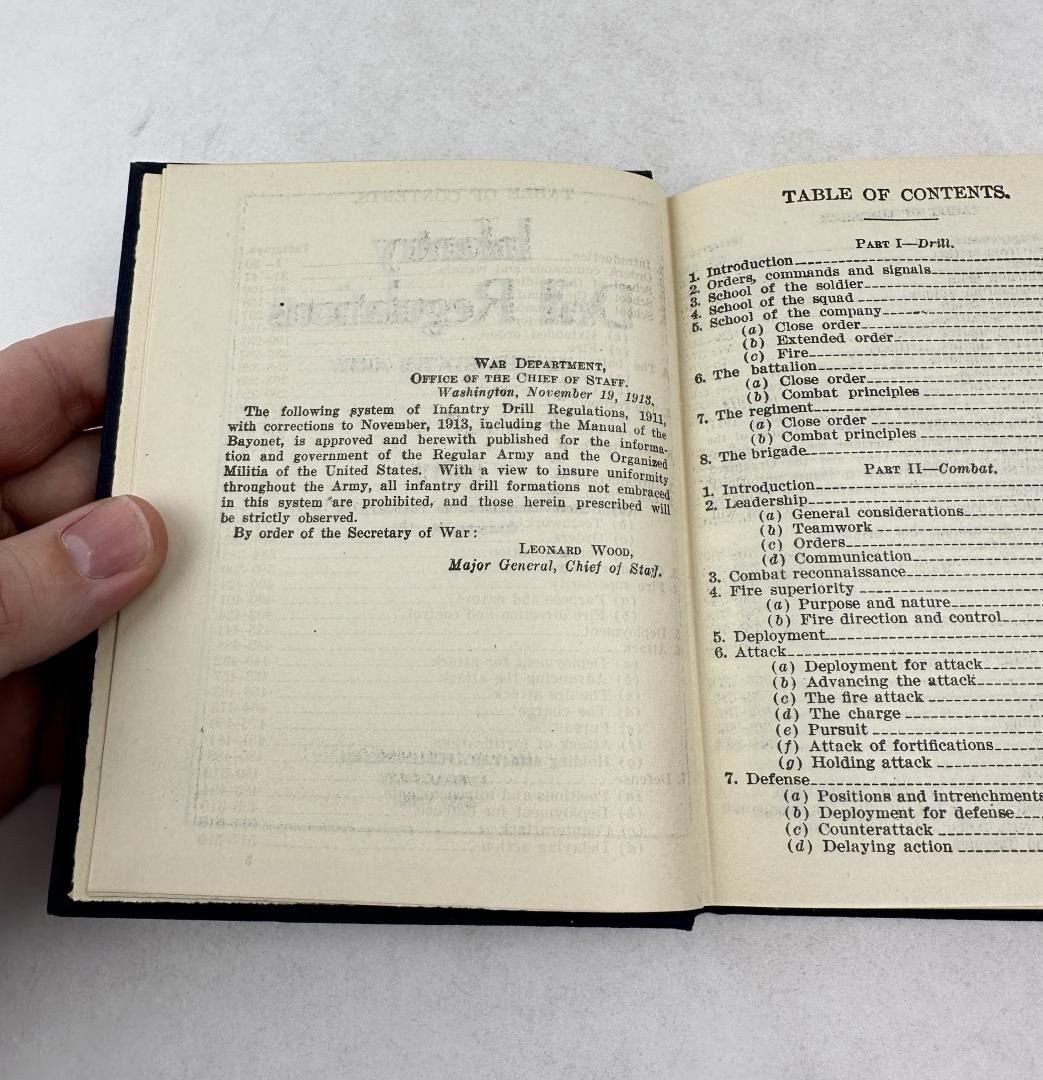 WAR DEPARTMENT,
OFFICE OF THE CHIEF OF STAFF,
Washington, November 19, 1913.
The following system of Infantry Drill Regulations, 1911,
with corrections to November, 1913, including the Manual of the
Bayonet, is approved and herewith published for the informa-
tion and government of the Regular Army and the Organized
Militia of the United States. With a view to insure uniformity
throughout the Army, all infantry drill formations not embraced
in this system are prohibited, and those herein prescribed will
be strictly observed.
By order of the Secretary of War:
LEONARD WOOD,
Major General, Chief of Staff.
TABLE OF CONTENTS.
PART I—Drill.
1. Introduction
2. Orders, commands and signals
3. School of the soldier
4. School of the squad
5. School of the company
(a) Close order
(b) Extended order
(c) Fire
6. The battalion
(a) Close order
(b) Combat principles
7. The regiment
(a) Close order
(b) Combat principles
8. The brigade
PART II—Combat.
1. Introduction
2. Leadership
(a) General considerations
(b) Teamwork
(c) Orders
(d) Communication
3. Combat reconnaissance
4. Fire superiority
(a) Purpose and nature
(b) Fire direction and control
5. Deployment
6. Attack
(a) Deployment for attack
(b) Advancing the attack
(c) The fire attack
(d) The charge
(e) Pursuit
(f) Attack of fortifications
(g) Holding attack
7. Defense
(a) Positions and intrenchments
(b) Deployment for defense
(c) Counterattack
(d) Delaying action